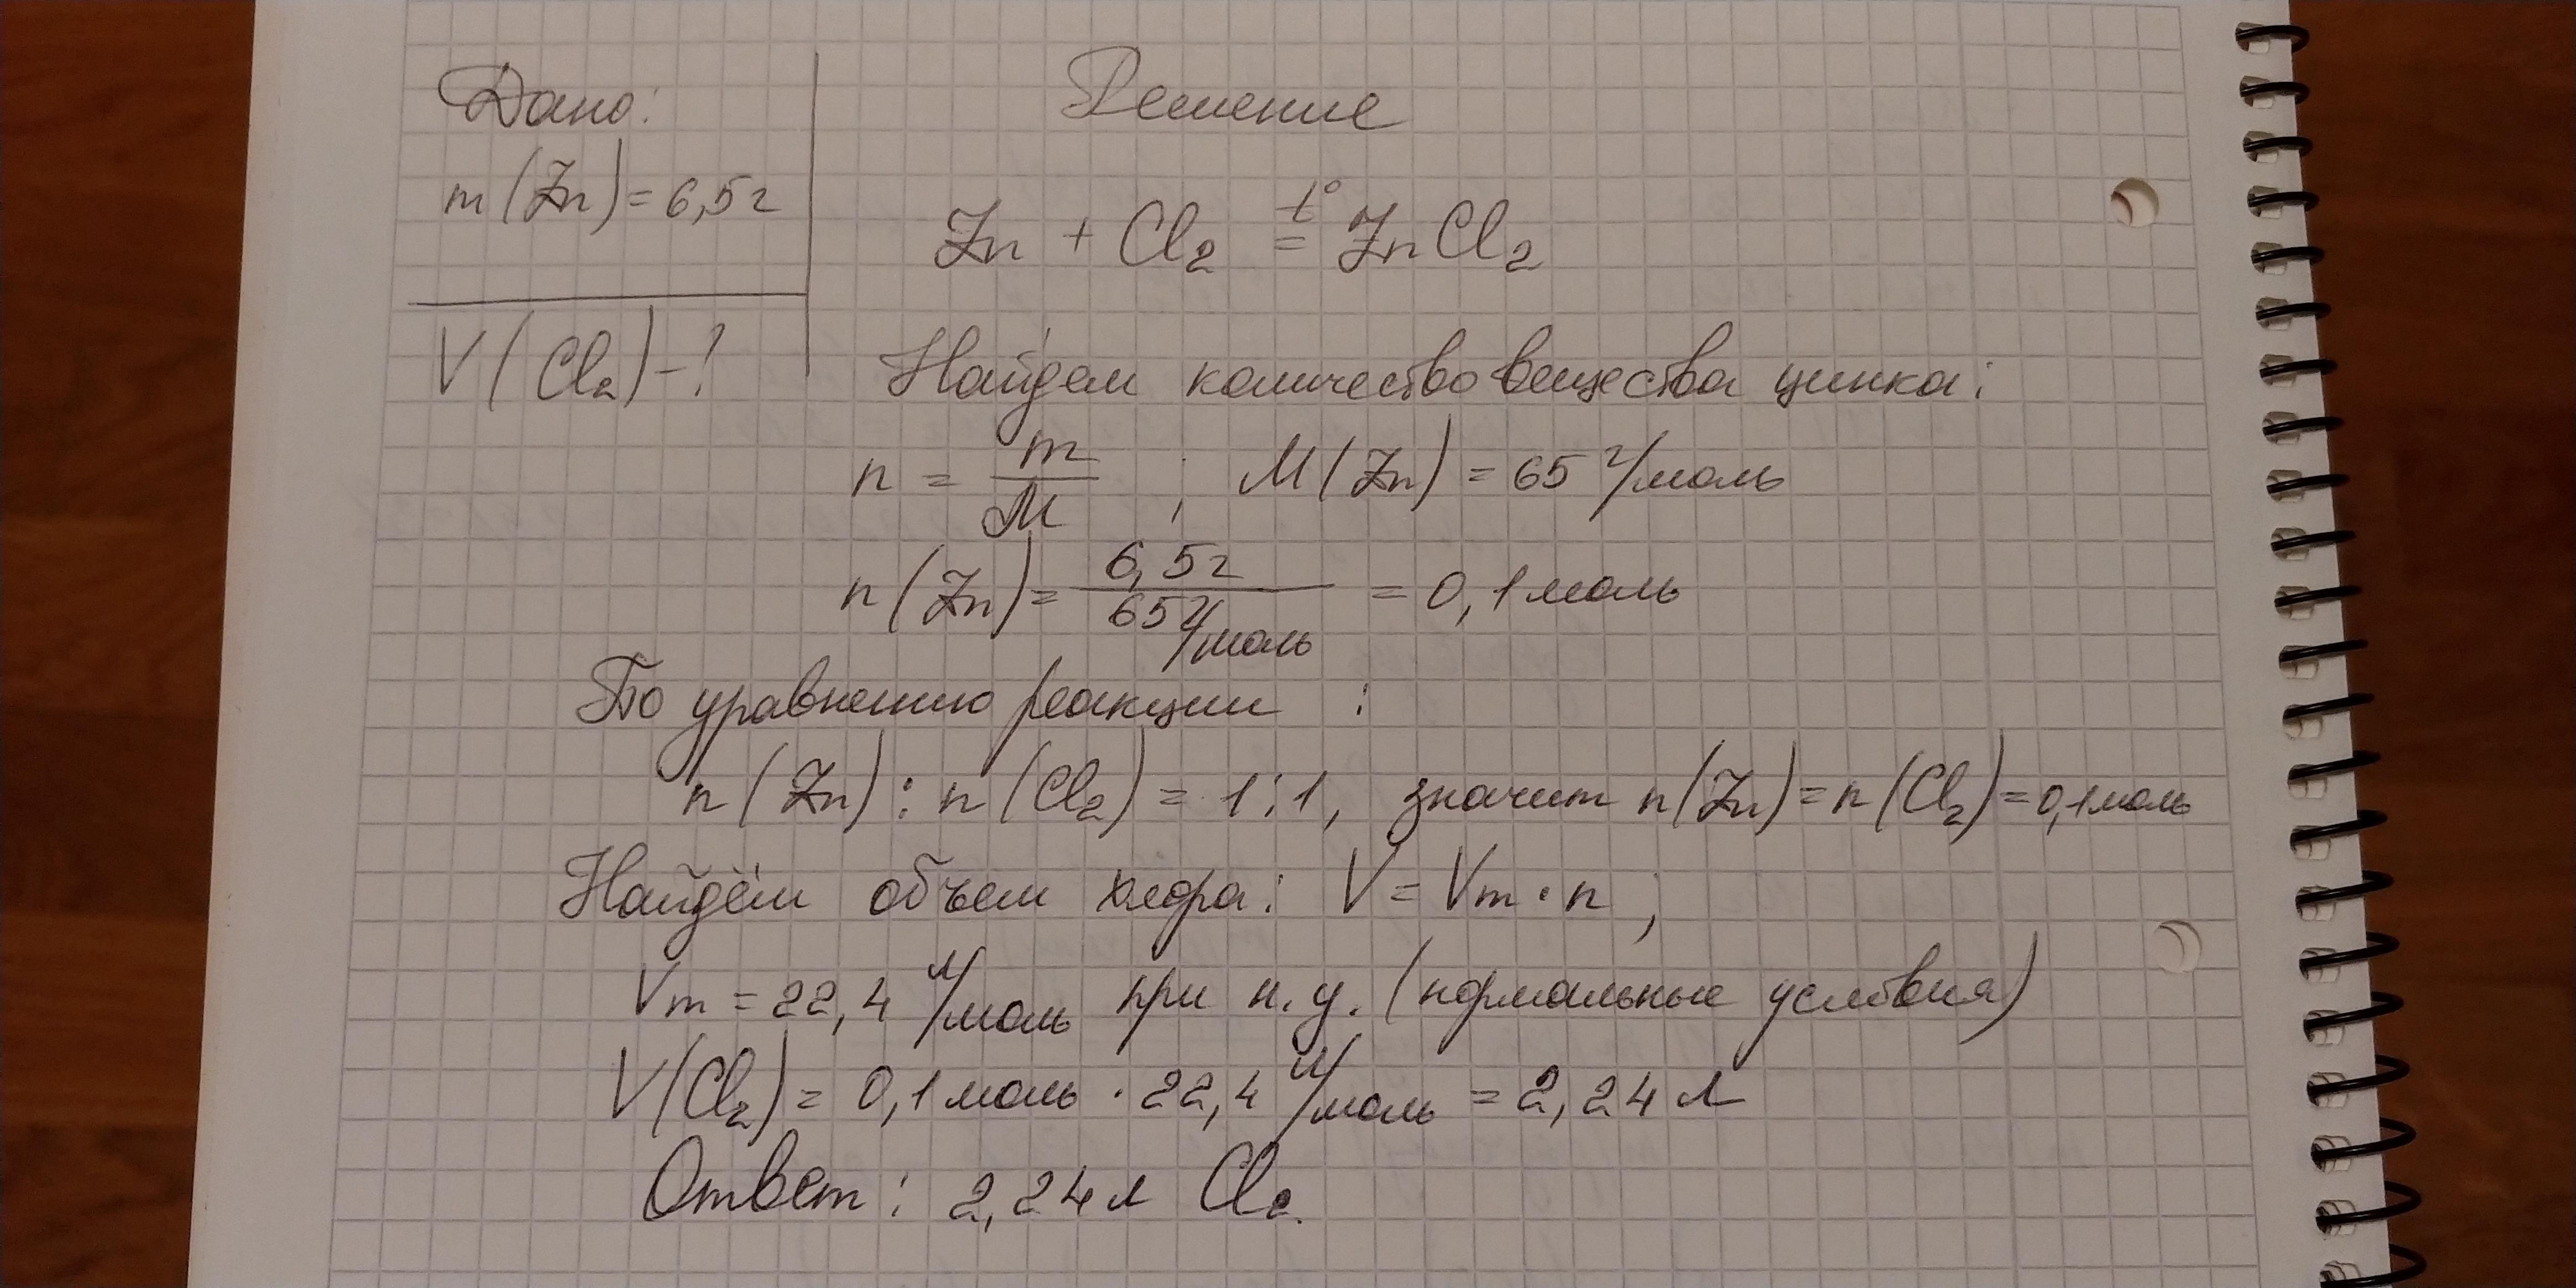 Дано:
m(Zn)=6,5г
V(Cl₂)-?
Решение
Zn + Cl₂ =ᵗ° ZnCl₂
Найдем количество вещества цинка:
n = m/M ; M(Zn) = 65 г/моль
n(Zn) = 6,5г/65 г/моль = 0,1 моль
По уравнению реакции :
n(Zn) : n(Cl₂) = 1:1, значит n(Zn)=n(Cl₂)=0,1моль
Найдём объем хлора: V = Vm · n ;
Vm = 22,4 л/моль при н.у. (нормальные условия)
V(Cl₂) = 0,1 моль · 22,4 л/моль = 2,24 л
Ответ: 2,24 л Cl₂.